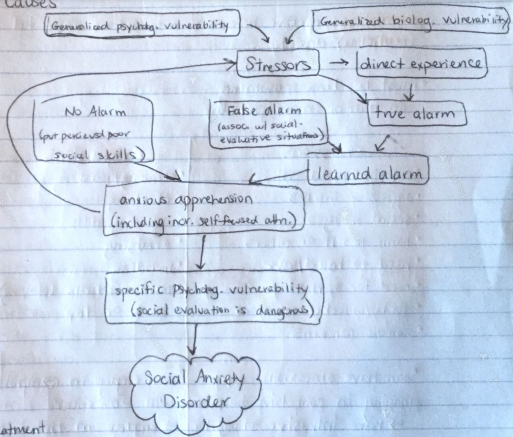 Causes
Generalized psycholog. vulnerability
Generalized biolog. vulnerability
Stressors
direct experience
No Alarm
(but percieved poor
social skills)
False alarm
(assoc. w/ social-
evaluative situations)
true alarm
learned alarm
anxious apprehension
(including incr. self-focused attn.)
specific psycholog. vulnerability
(social evaluation is dangerous)
Social Anxiety
Disorder
atment